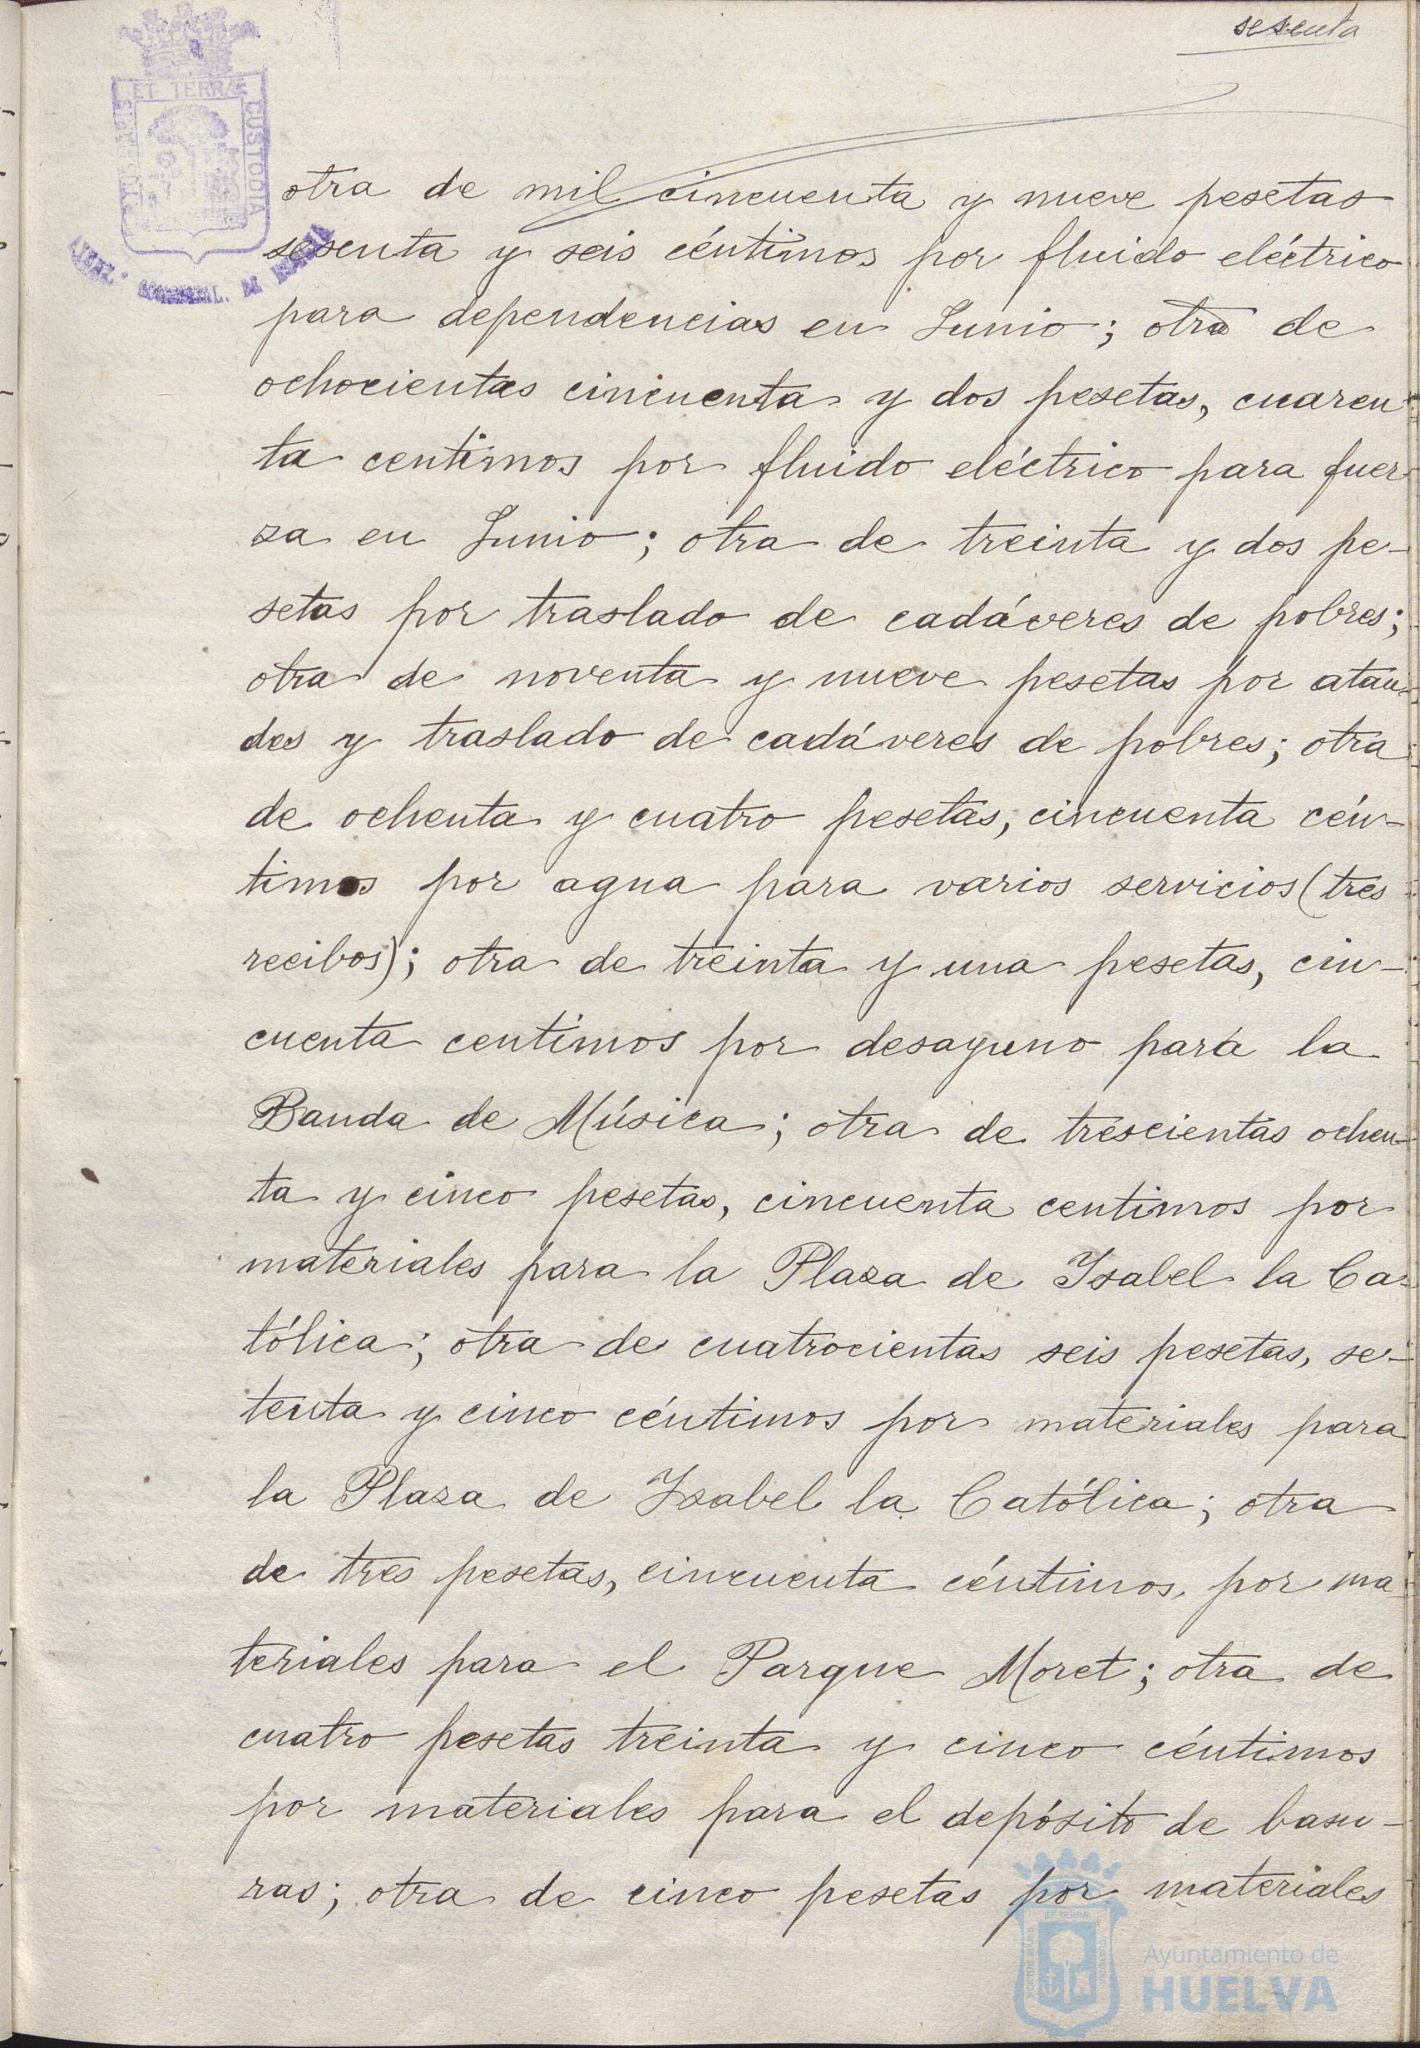 sesenta
ET TERRÆ
CUSTODIA
otra de mil cincuenta y nueve pesetas
sesenta y seis céntimos por fluido eléctrico
para dependencias en Junio; otra de
ochocientas cincuenta y dos pesetas, cuaren
ta centimos por fluido eléctrico para fuer
za en Junio; otra de treinta y dos pe-
setas por traslado de cadáveres de pobres;
otra de noventa y nueve pesetas por atau-
des y traslado de cadáveres de pobres; otra
de ochenta y cuatro pesetas, cincuenta cén-
timos por agua para varios servicios (tres
recibos); otra de treinta y una pesetas, cin-
cuenta centimos por desayuno para la
Banda de Música; otra de trescientas ochen-
ta y cinco pesetas, cincuenta centimos por
materiales para la Plaza de Isabel la Ca-
tólica; otra de cuatrocientas seis pesetas, se-
tenta y cinco céntimos por materiales para
la Plaza de Isabel la Católica; otra
de tres pesetas, cincuenta céntimos, por ma-
teriales para el Parque Moret; otra de
cuatro pesetas treinta y cinco céntimos
por materiales para el depósito de basu-
ras; otra de cinco pesetas por materiales
Ayuntamiento de
HUELVA